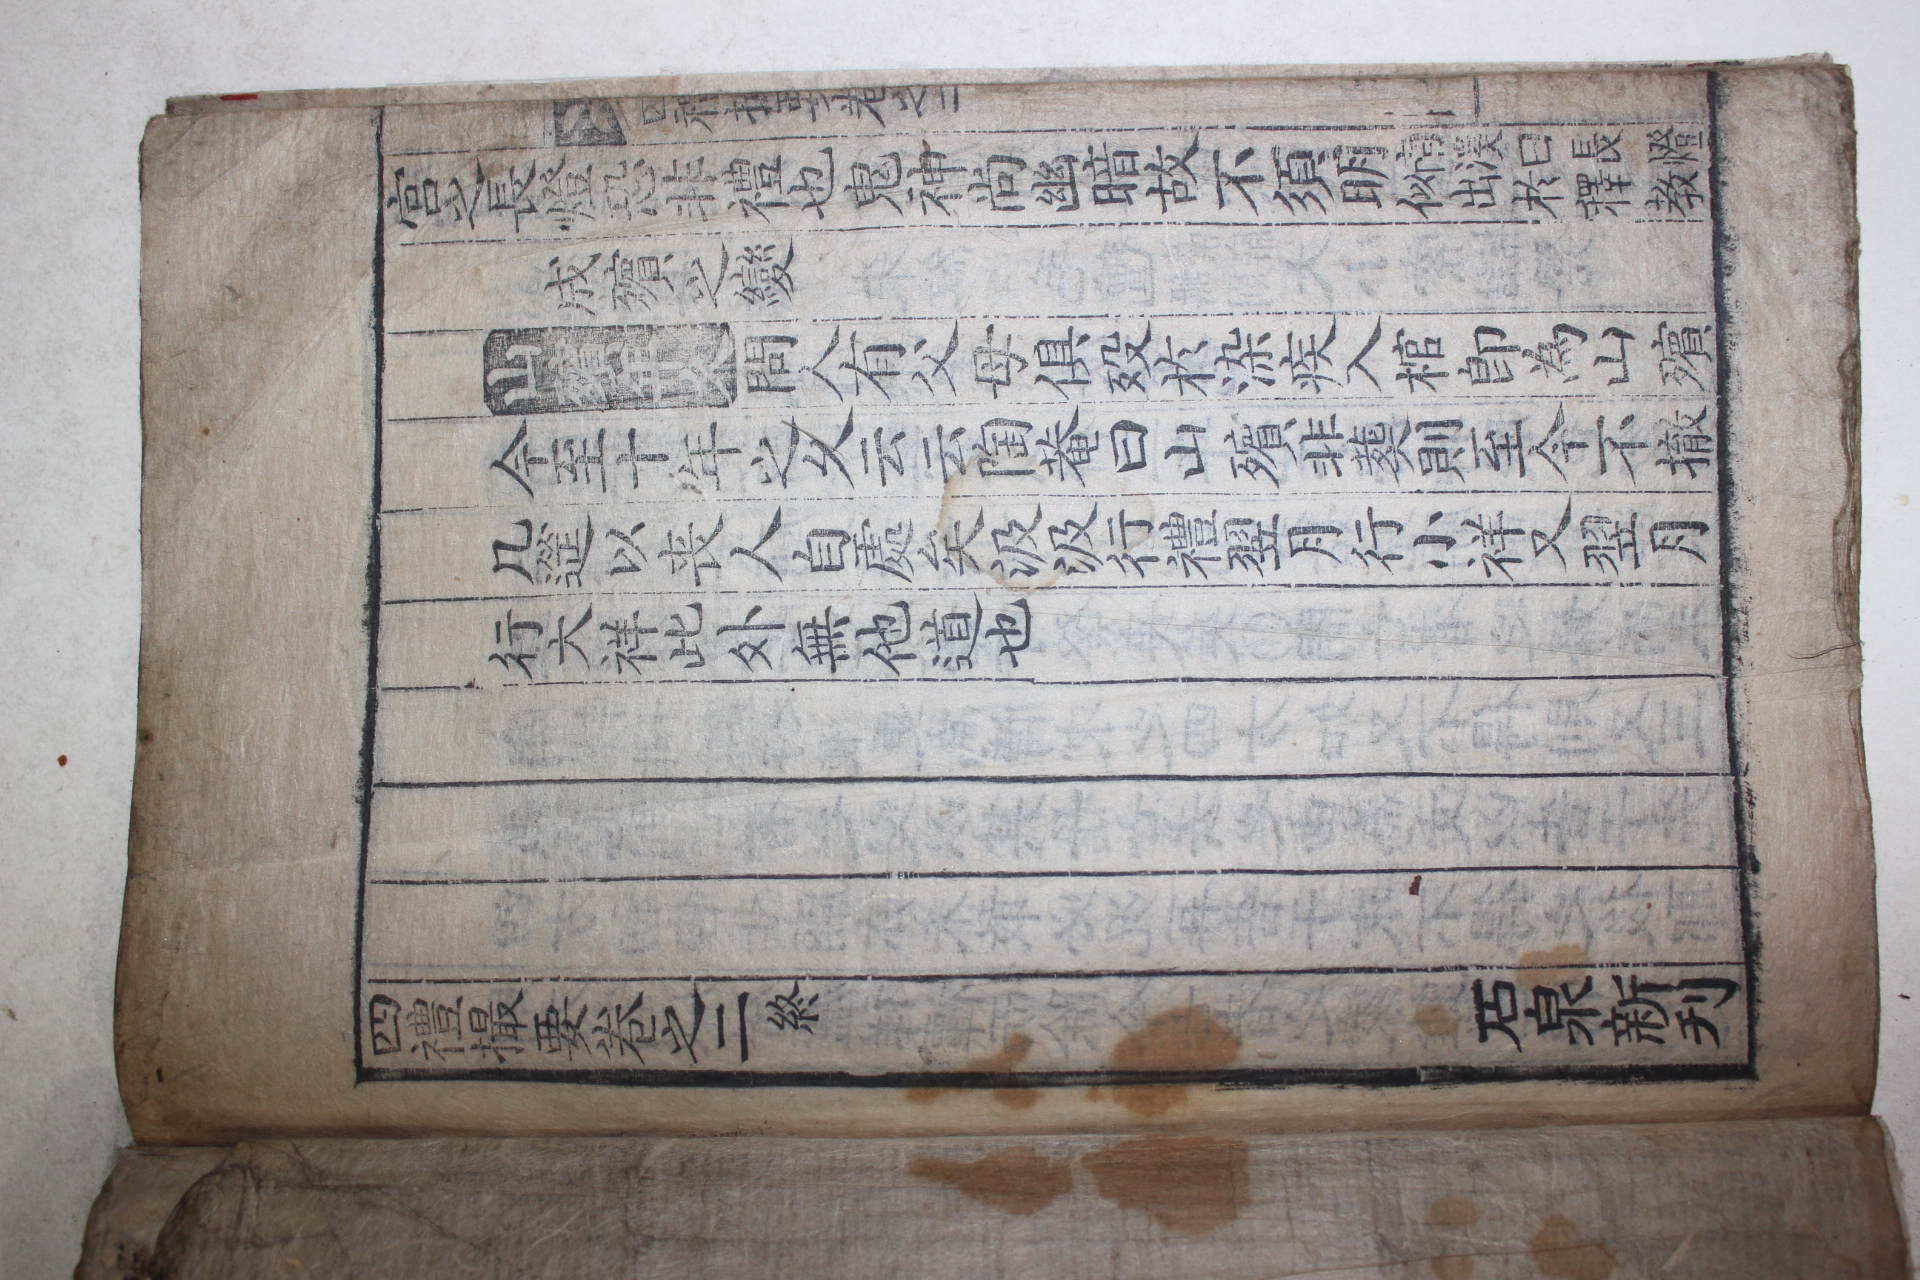 四禮撮要卷之二
宮之長燈恐非禮也鬼神尚幽暗故不須明南溪曰長燈
似出於釋教
成殯之變
山殯年久問人有父母俱歿於染疾入棺即為山殯
今至十年之久云云陶菴曰山殯非葬則至今不撤
几筵以丧人自處矣汲汲行禮翌月行小祥又翌月
行大祥此外無他道也
四禮撮要卷之二 終
石泉新刊